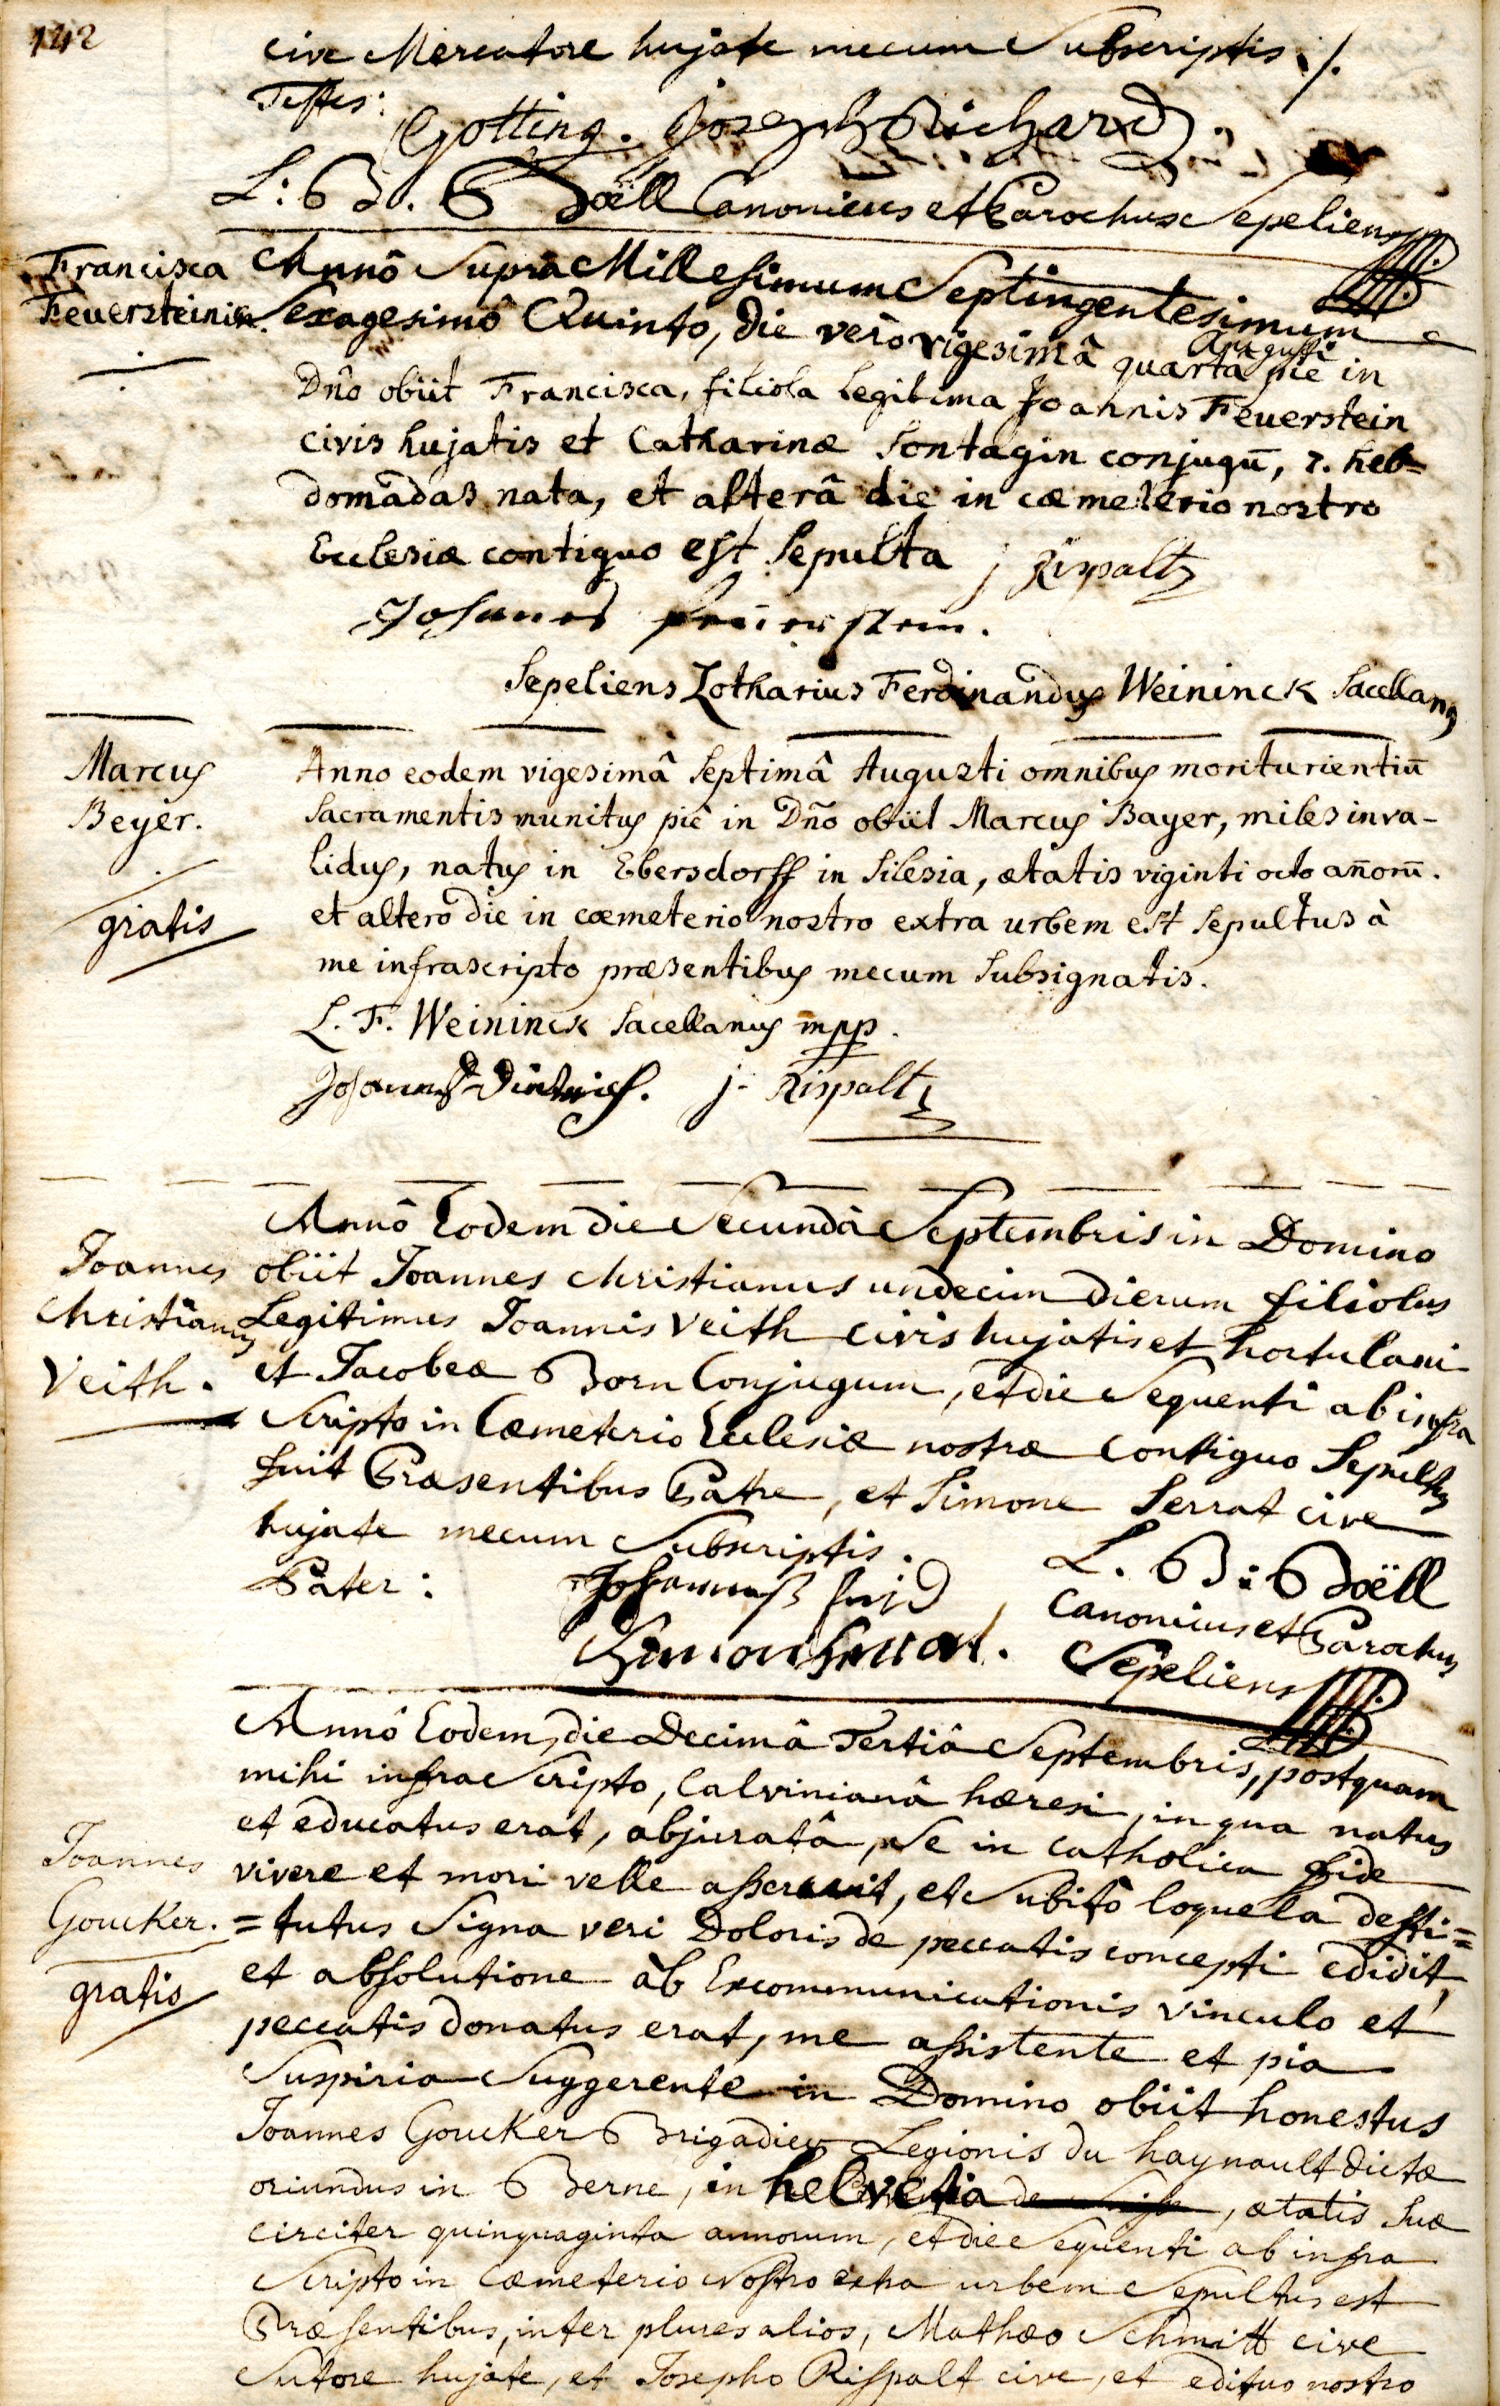 142
cive Mercatore hujate mecum Subscriptis ./.
Testes:
Gotting. Joseph Richard.
L: B. B Doëll Canonicus et Parochus Sepeliens
Francisca
Feuersteinin.
Annô Suprà Millesimum Septingentesimum
Sexagesimô Quinto, die verò vigesimâ quarta Augusti pie in
Dño obiit Francisca, filiola legitima Joannis Feuerstein
civis hujatis et Catharinæ Sontagin conjugū, 7. heb=
domâdas nata, et alterâ die in cæmeterio nostro
Ecclesiæ contiguo est Sepulta j Rispalt
Johannes
Sepeliens Lotharius Ferdinandus Weininck Sacellanus
Marcus
Beyer.
gratis
Anno eodem vigesimâ Septimâ Augusti omnibus moriturientiū
Sacramentis munitus piè in Dño obiit Marcus Bayer, miles inva-
lidus, natus in Ebersdorff in Silesia, ætatis viginti octo añorū.
et altero die in cœmeterio nostro extra urbem est Sepultus à
me infrascripto præsentibus mecum Subsignatis.
L. F. Weininck Sacellanus mpp.
Johannes Dietrich. j. Rispalt
Joannes
Christianus
Veith.
Annô Eodem die Secundâ Septembris in Domino
obiit Joannes Christianus undecim dierum filiolus
Legitimus Joannis Veith civis hujatis et hortulani
et Jacobeæ Born Conjugum, et die Sequenti ab infra
Scripto in Cæmeterio Ecclesiæ nostræ Contiguo Sepultus
fuit Præsentibus Patre, et Simone Serrat cive
hujate mecum Subscriptis.
Pater: Johannes
Simon Serrat.
L. B: B Doëll
Canonicus et Parochus
Sepeliens
Joannes
Goucker.
gratis
Annô Eodem, die Decimâ Tertiâ Septembris, postquam
mihi infra Scripto, Calvinianâ hæresi, in qua natus
et educatus erat, abjuratâ, Se in Catholica fide
vivere et mori velle asseruit, et Subitô loquela desti=
=tutus Signa veri Doloris de peccatis concepti edidit,
et absolutione àb Excommunicationis vinculo et
peccatis donatus erat, me assistente et pia
Suspiria Suggerente in Domino obiit honestus
Joannes Goucker Brigadier Legionis du haynault dictæ
oriundus in Berne, in helvetia de , ætatis Suæ
circiter quinquaginta annorum, et die Sequenti ab infra
Scripto in Cæmeterio Nostro extra urbem Sepultus est
Præsentibus, inter plures alios, Mathæo Schmitt cive
Sutore hujate, et Josepho Rispalt cive, et edituo nostro